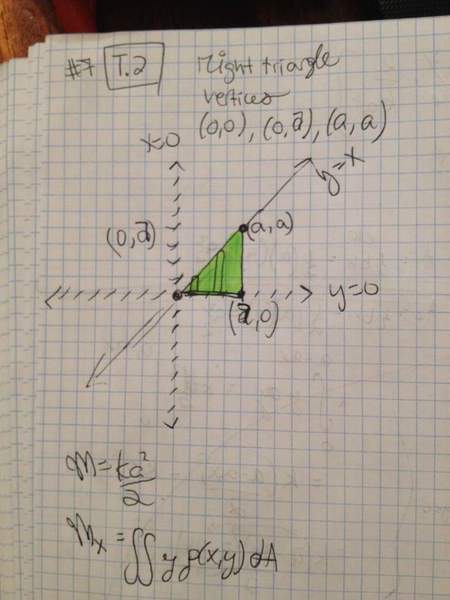 #7 T.2 Right triangle
vertices
(0,0), (0,a), (a,a)
x=0
y=x
(0,a)
(a,a)
y=0
(a,0)
M = ka²/2
Mx = ∬ y ρ(x,y) dA